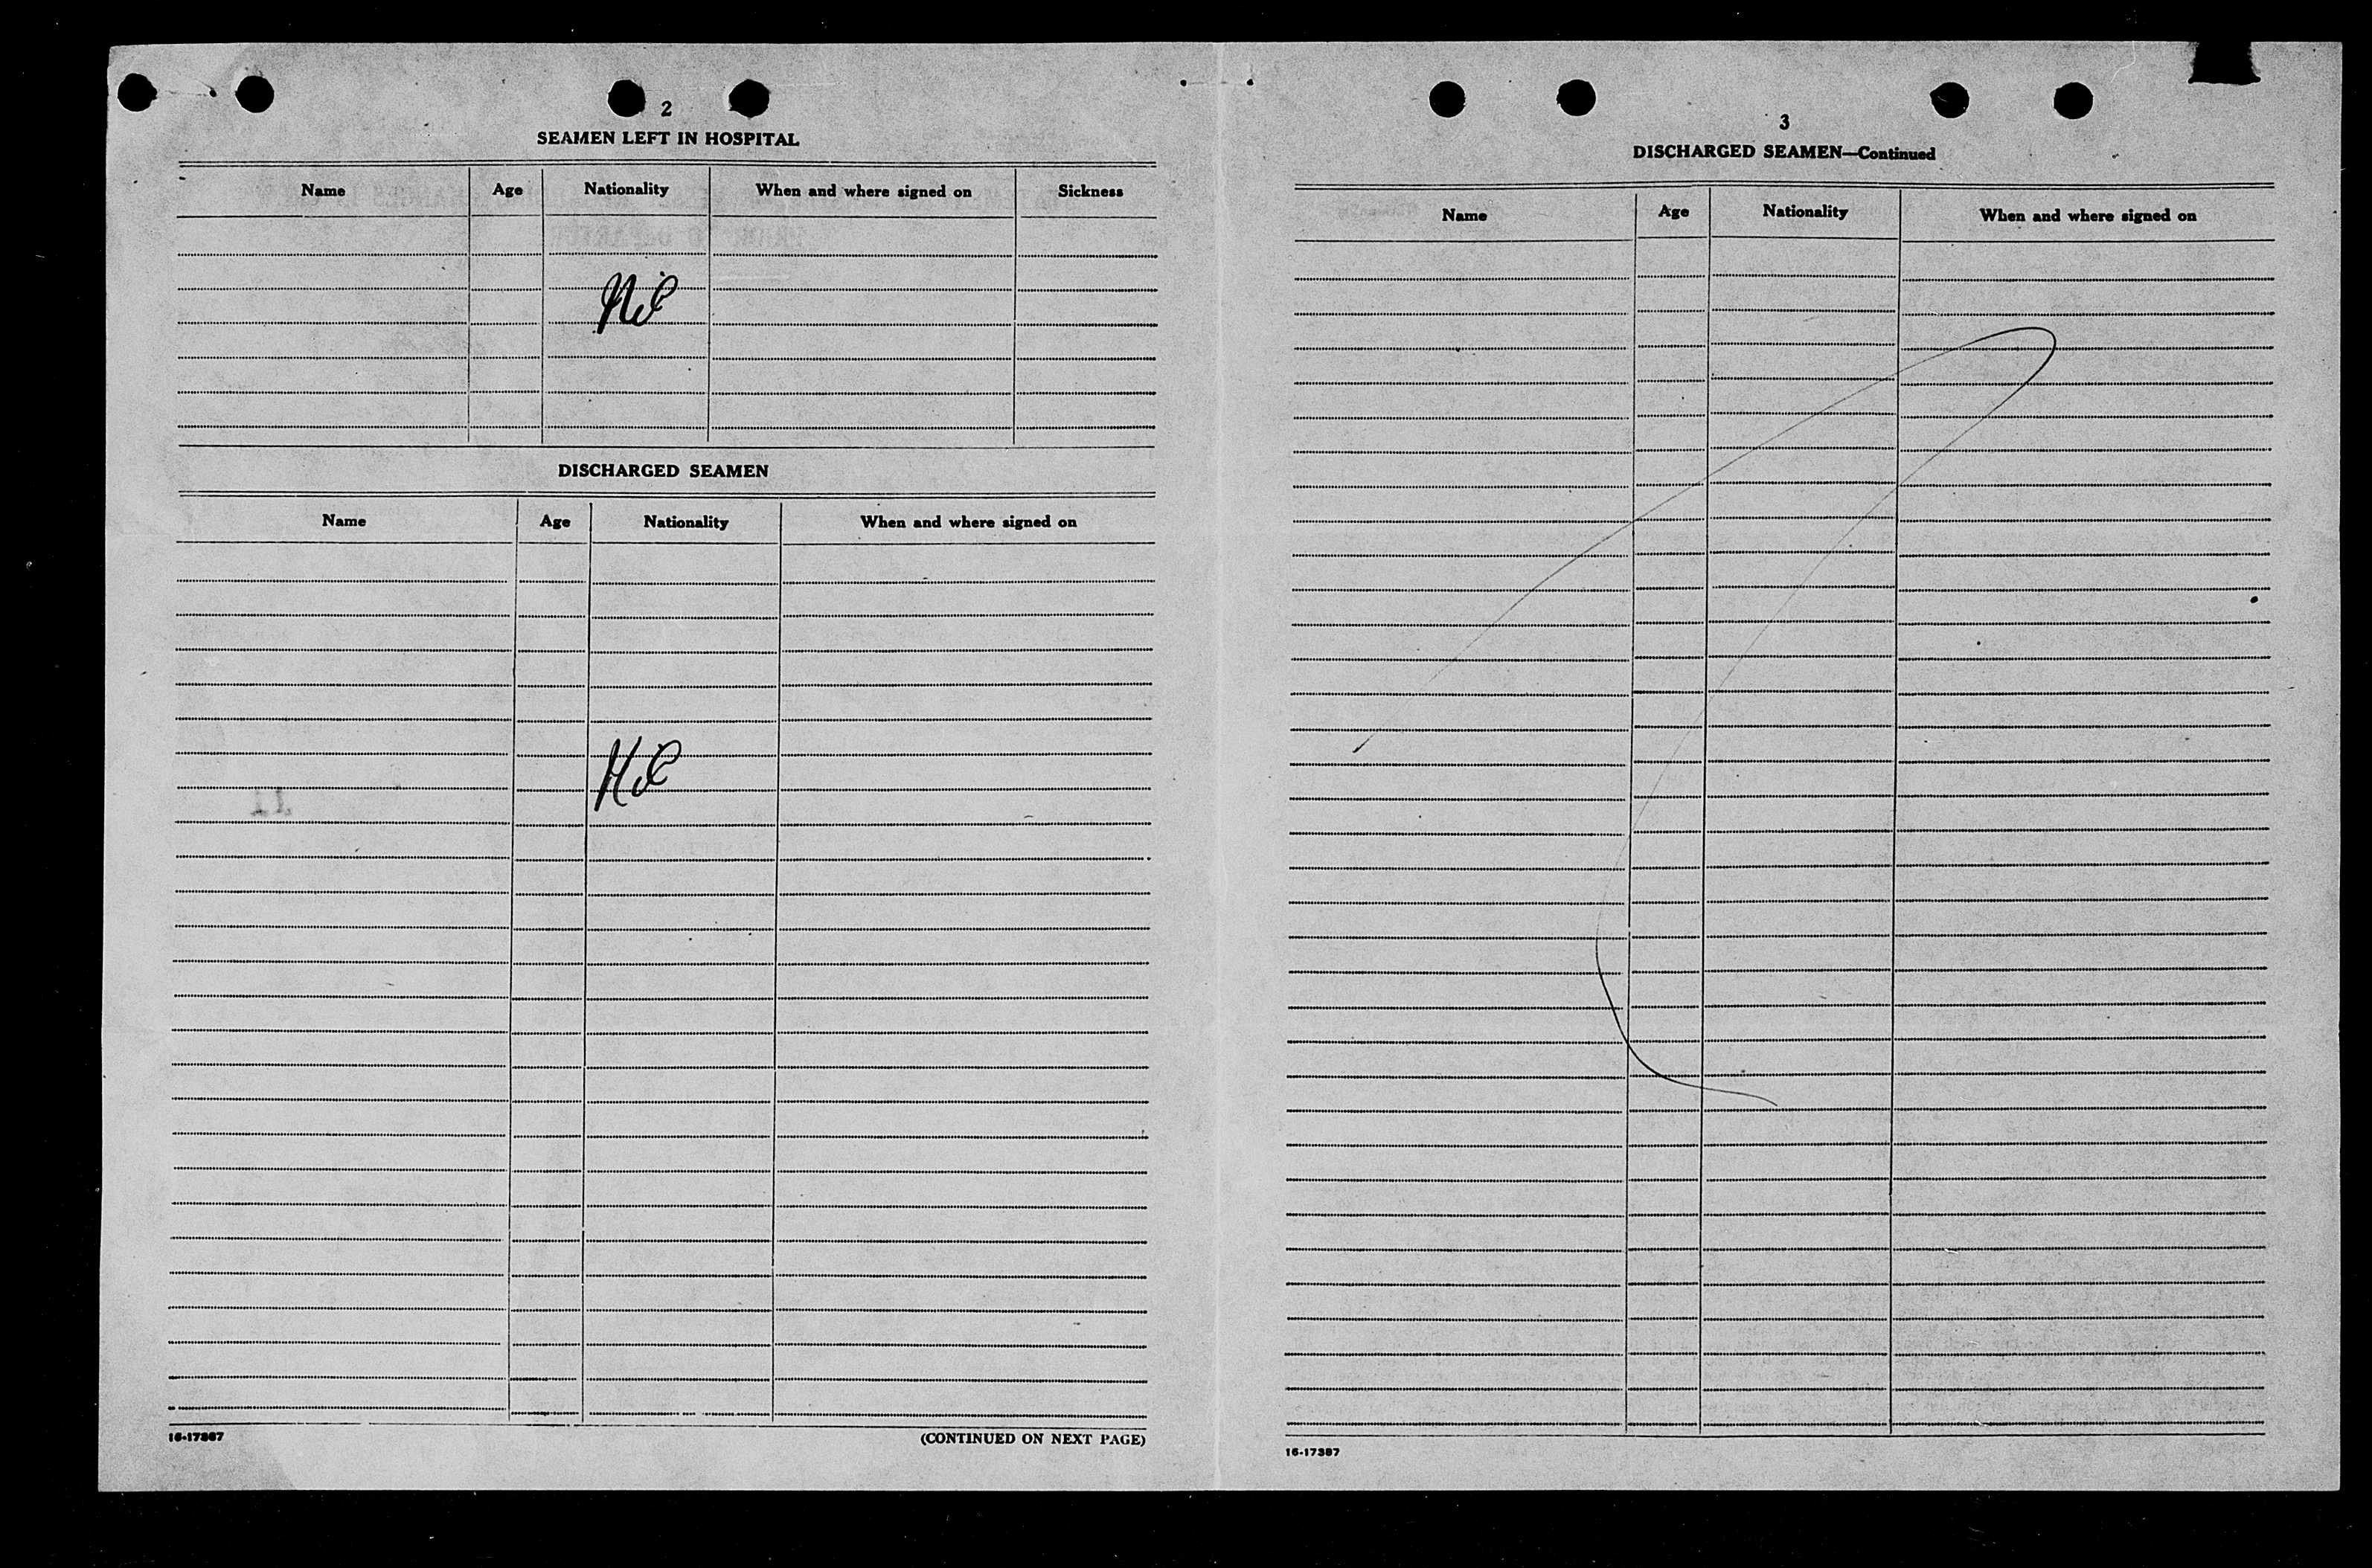 2
SEAMEN LEFT IN HOSPITAL
Name Age Nationality When and where signed on Sickness
Nil
DISCHARGED SEAMEN
Name Age Nationality When and where signed on
Nil
16-17387 (CONTINUED ON NEXT PAGE)
3
DISCHARGED SEAMEN—Continued
Name Age Nationality When and where signed on
16-17387